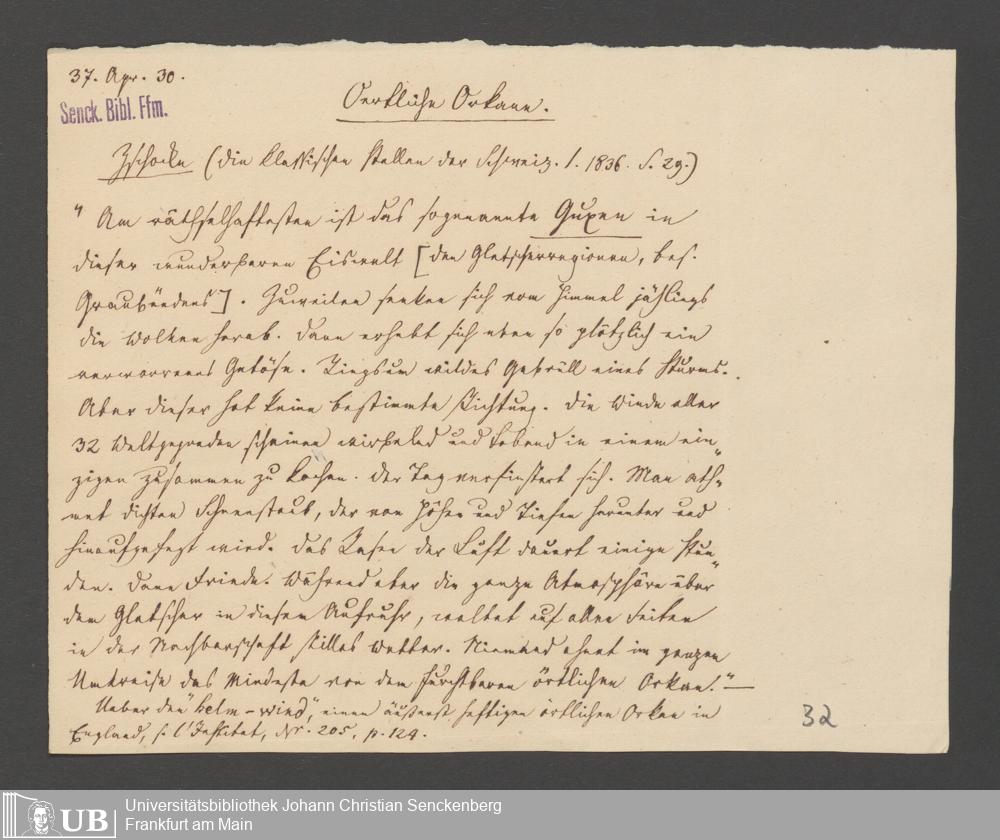 37. Apr. 30.
Senck. Bibl. Ffm.
Oertliche Orkane.
Zschocke (die klassischen Stellen der Schweiz. 1. 1836. S. 29.)
" Am räthselhaftesten ist das sogenannte Guxen in
dieser wunderbaren Eiswelt [den Gletscherregionen, bes.
Graubündens]. Zuweilen senken sich vom Himmel jählings
die Wolken herab. Dann erhebt sich eben so plötzlich ein
verworrenes Getöse. Ringsum wildes Gebrüll eines Sturms.
Aber dieser hat keine bestimmte Richtung. Die Winde aller
32 Weltgegenden scheinen wirbelnd und tobend in einem ein„
zigen zusammen zu kochen. Der Tag verfinstert sich. Man ath„
met dichten Schneestaub, der von Höhen und Tiefen herunter und
hinaufgefegt wird. Das Rasen der Luft dauert einige Stun„
den. Dann Friede. Während aber die ganze Atmosphäre über
den Gletscher in diesem Aufruhr, waltet auf allen Seiten
in der Nachbarschaft stilles Wetter. Niemand ahnet im ganzen
Umkreise das Mindeste von dem furchtbaren örtlichen Orkan." —
Ueber den "Helm-wind", einen äußerst heftigen örtlichen Orkan in
England, s. l'Institut, Nr. 205, p. 124.
32
UB
Universitätsbibliothek Johann Christian Senckenberg
Frankfurt am Main